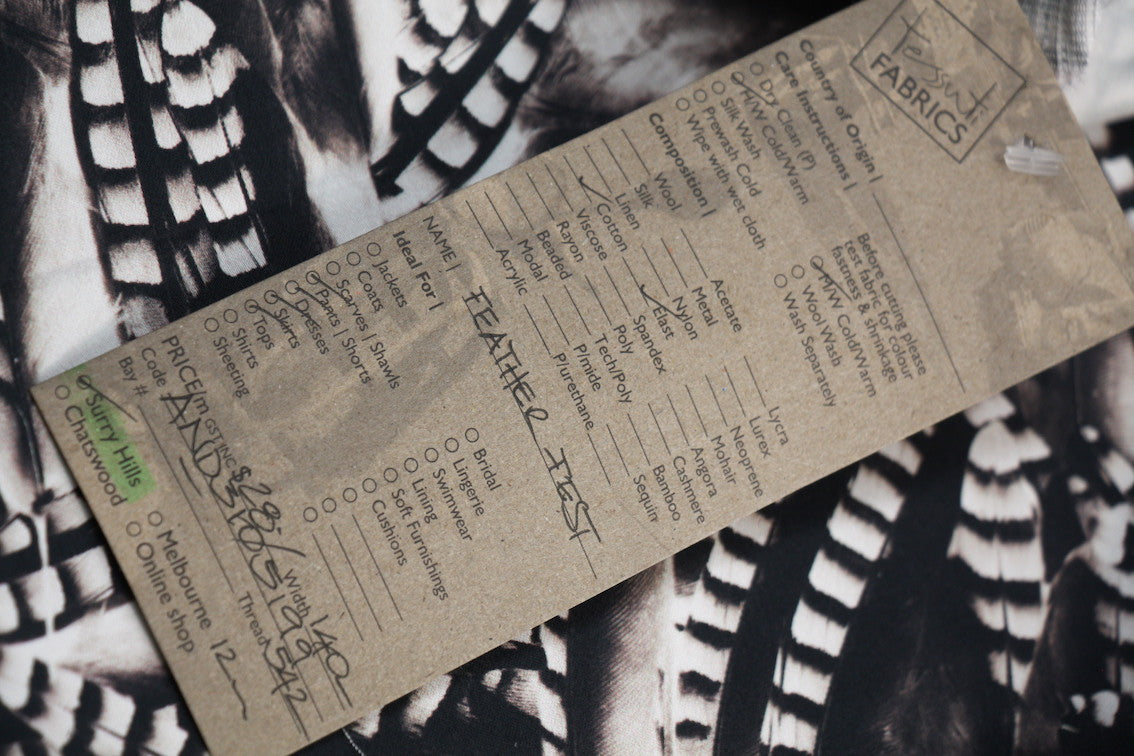 Tessuti
FABRICS
Country of Origin |
Care Instructions |
Dry Clean (P)
H/W Cold/Warm
Silk Wash
Prewash Cold
Wipe with wet cloth
Before cutting please
test fabric for colour
fastness & shrinkage
H/W Cold/Warm
Wool Wash
Wash Separately
Composition |
Wool
Silk
Linen
Cotton
Viscose
Rayon
Beaded
Modal
Acrylic
Acetate
Metal
Nylon
Elast
Spandex
Poly
Tech/Poly
P/mide
P/urethane
Lycra
Lurex
Neoprene
Mohair
Angora
Cashmere
Bamboo
Sequin
NAME | FEATHER FEST
Ideal For |
Jackets
Coats
Scarves | Shawls
Pants | Shorts
Dresses
Skirts
Tops
Shirts
Sheeting
Bridal
Lingerie
Swimwear
Lining
Soft Furnishings
Cushions
PRICE/m GST INC $29.-/ Width 140
Code AND3105199 Thread 542
Bay #
Surry Hills
Chatswood
Melbourne
Online shop
12